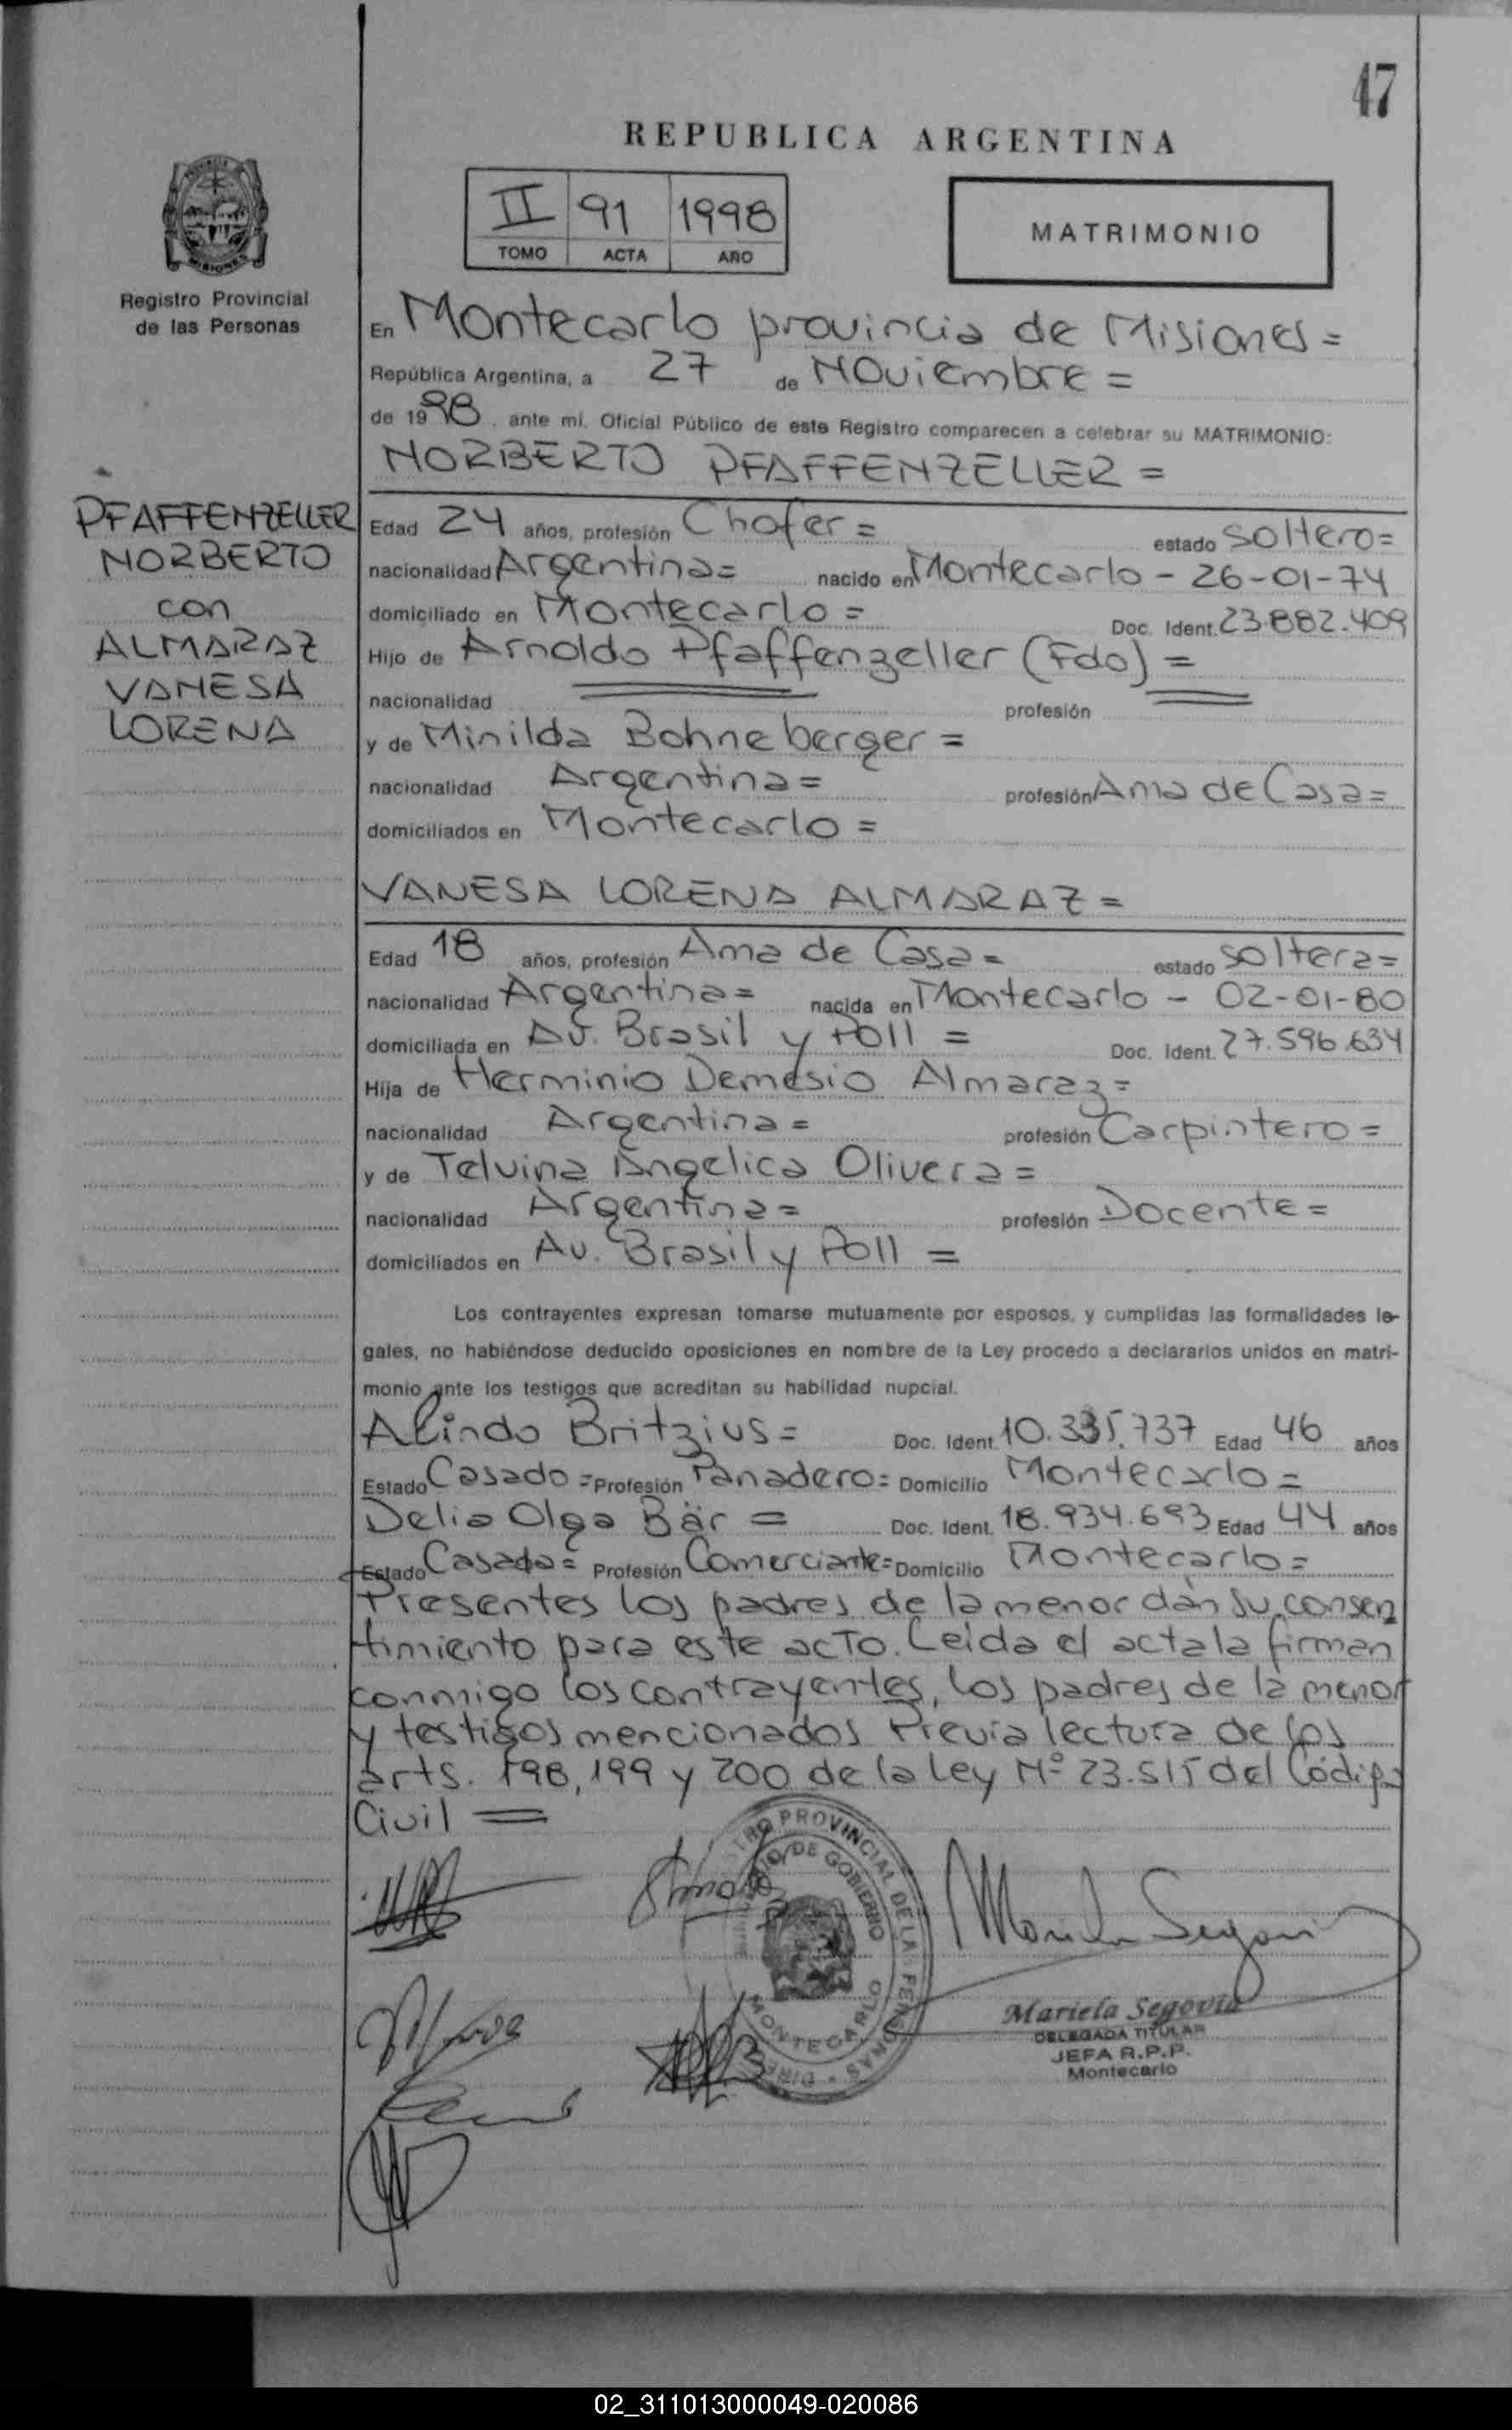 47
REPUBLICA ARGENTINA
II 91 1998
TOMO ACTA AÑO
MATRIMONIO
Registro Provincial
de las Personas
En Montecarlo provincia de Misiones =
República Argentina, a 27 de Noviembre =
de 1998, ante mí, Oficial Público de este Registro comparecen a celebrar su MATRIMONIO:
NORBERTO PFAFFENZELLER =
PFAFFENZELLER
NORBERTO
con
ALMARAZ
VANESA
LORENA
Edad 24 años, profesión Chofer = estado soltero =
nacionalidad Argentina = nacido en Montecarlo - 26-01-74
domiciliado en Montecarlo = Doc. Ident. 23.882.409
Hijo de Arnoldo Pfaffenzeller (Fdo) =
nacionalidad profesión
y de Minilda Bohneberger =
nacionalidad Argentina = profesión Ama de Casa =
domiciliados en Montecarlo =
VANESA LORENA ALMARAZ =
Edad 18 años, profesión Ama de Casa = estado soltera =
nacionalidad Argentina = nacida en Montecarlo - 02-01-80
domiciliada en Av. Brasil y Poll = Doc. Ident. 27.596.634
Hija de Herminio Demesio Almaraz =
nacionalidad Argentina = profesión Carpintero =
y de Telvina Angelica Olivera =
nacionalidad Argentina = profesión Docente =
domiciliados en Av. Brasil y Poll =
Los contrayentes expresan tomarse mutuamente por esposos, y cumplidas las formalidades le-
gales, no habiéndose deducido oposiciones en nombre de la Ley procedo a declararlos unidos en matri-
monio ante los testigos que acreditan su habilidad nupcial.
Alindo Britzius = Doc. Ident. 10.335.737 Edad 46 años
Estado Casado = Profesión Panadero = Domicilio Montecarlo =
Delia Olga Bär = Doc. Ident. 18.934.693 Edad 44 años
Estado Casada = Profesión Comerciante = Domicilio Montecarlo =
Presentes los padres de la menor dán su consen
timiento para este acto. Leida el acta la firman
conmigo los contrayentes, los padres de la menor
y testigos mencionados Previa lectura de los
arts. 198, 199 y 200 de la Ley Nº 23.515 del Código
Civil =
REGISTRO PROVINCIAL DE LAS PERSONAS
MINISTERIO DE GOBIERNO
MONTECARLO
Mariela Segovia
Mariela Segovia
DELEGADA TITULAR
JEFA R.P.P.
Montecarlo
02_311013000049-020086